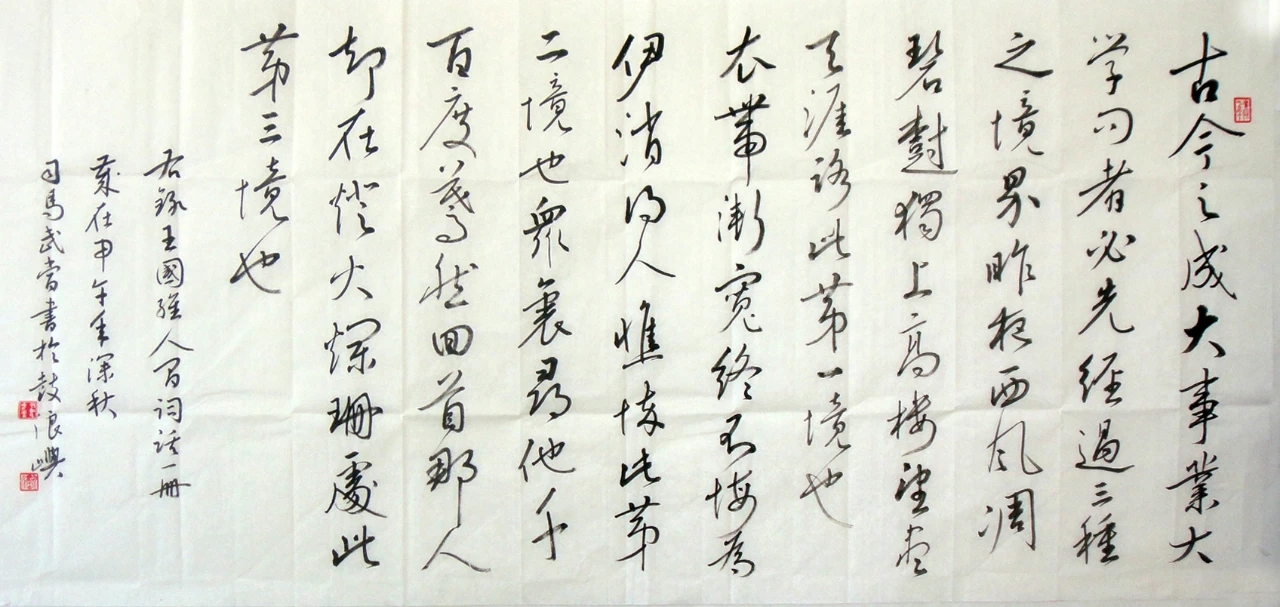 古今之成大事業大
学问者必先经過三種
之境界昨夜西风凋
碧樹獨上高楼望盡
天涯路此第一境也
衣帶漸寬終不悔為
伊消得人憔悴此第
二境也眾裏尋他千
百度驀然回首那人
却在燈火阑珊處此
第三境也
右録王國維人间词话一册
歲在甲午年深秋
司馬武當書於鼓浪嶼